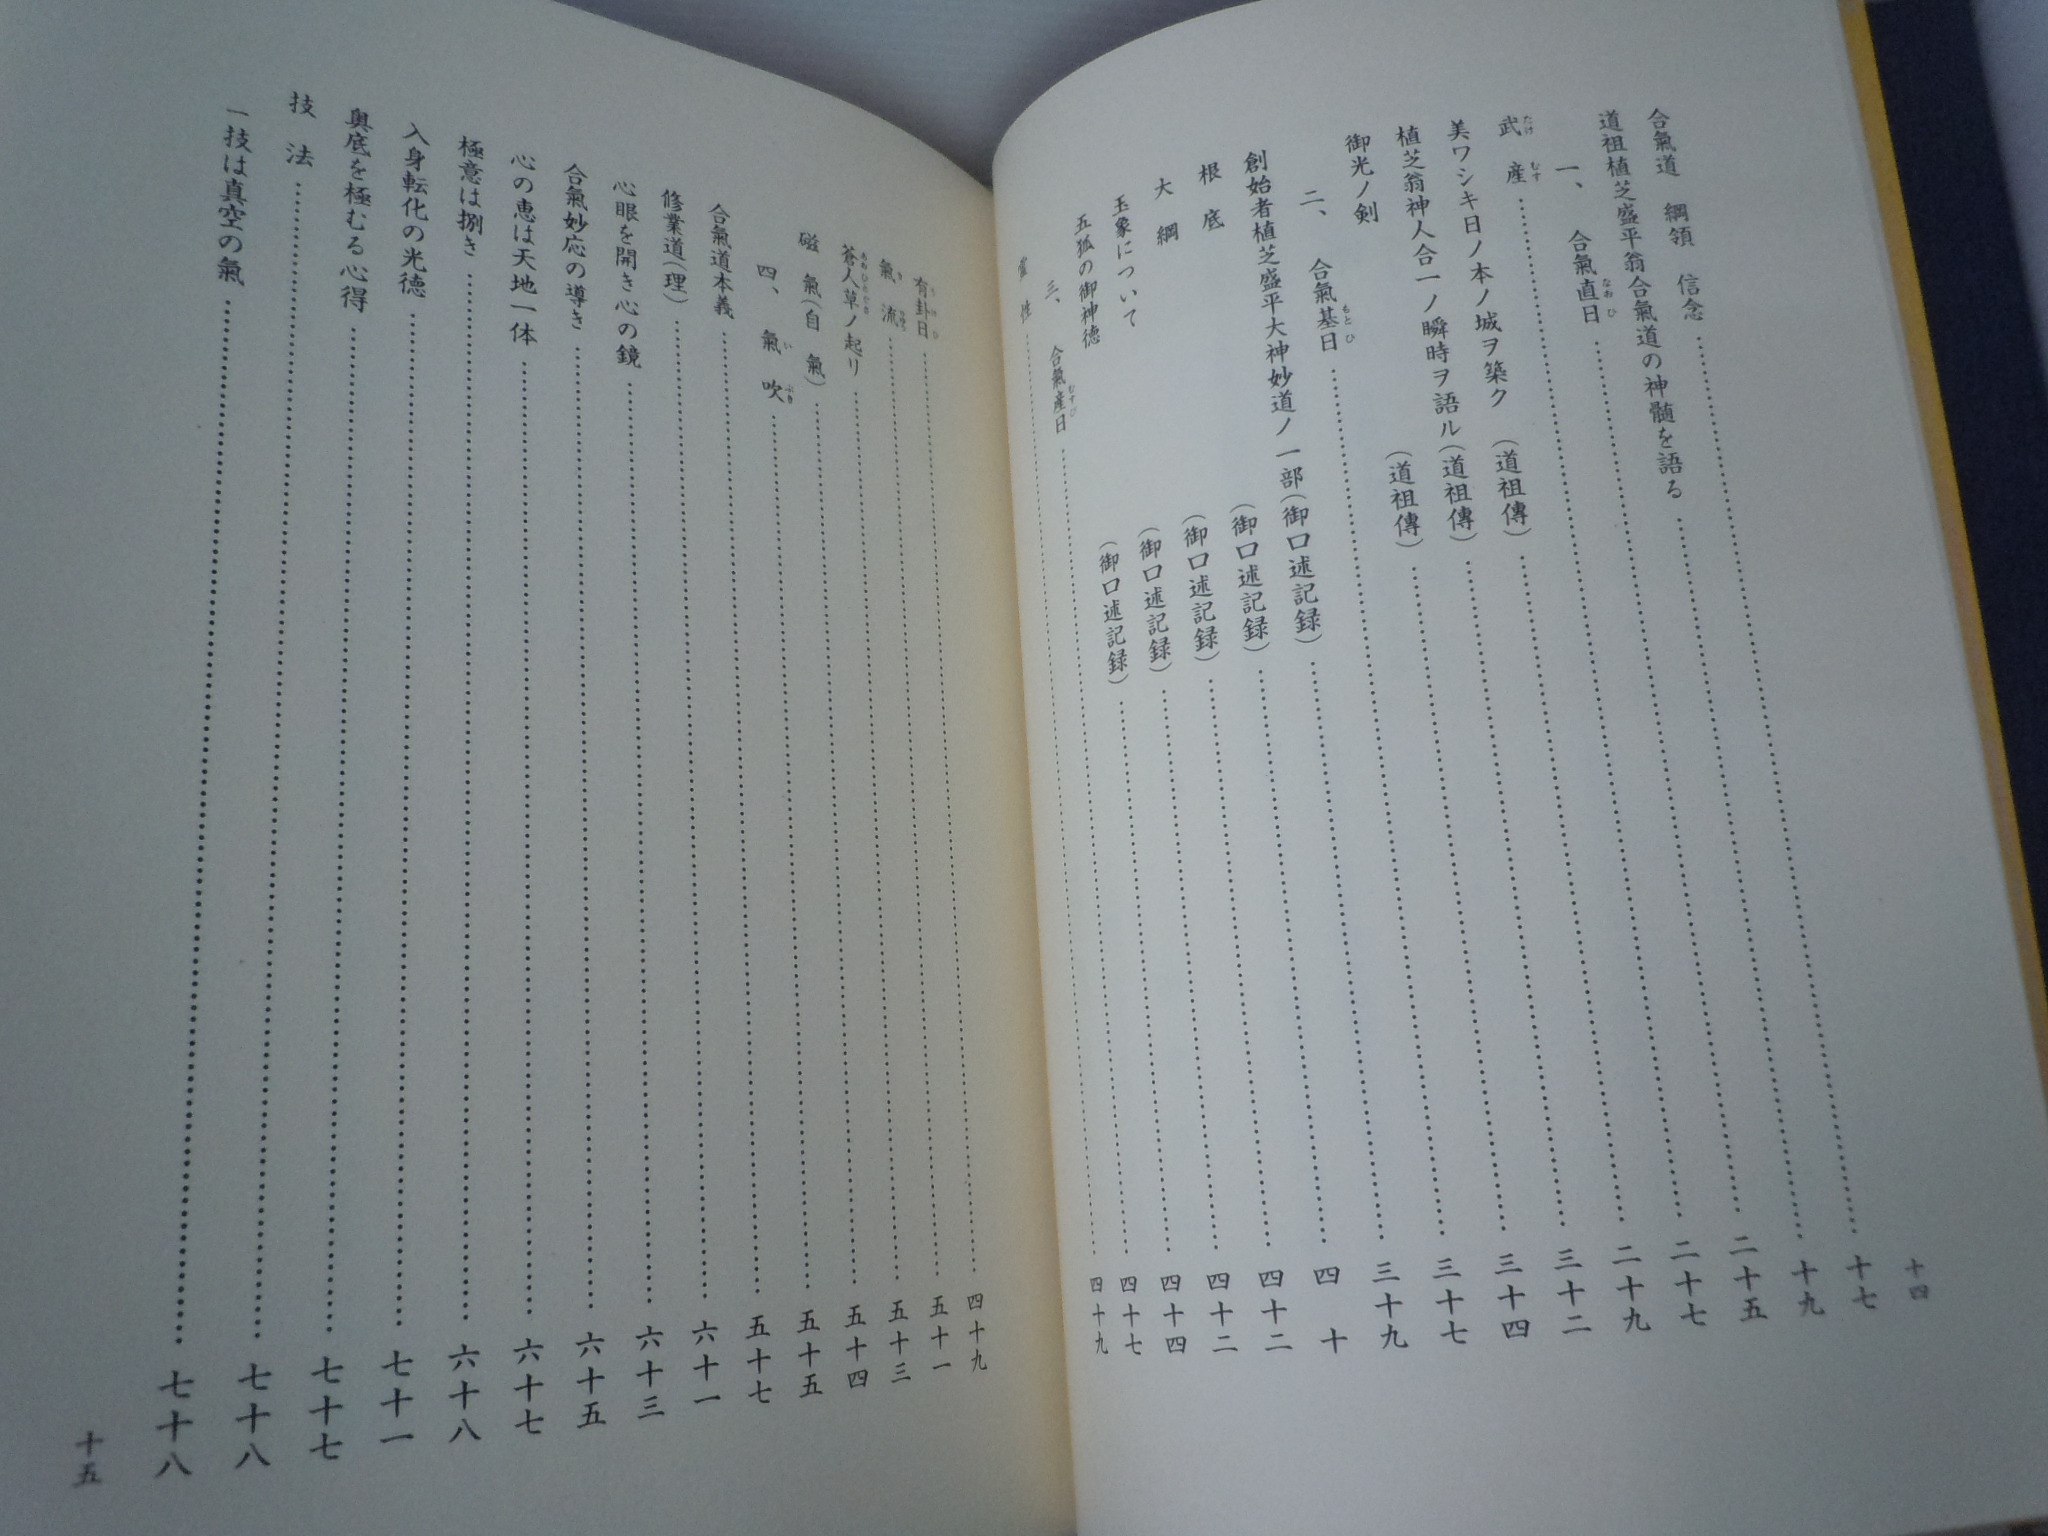 十四
合氣道 綱領 信念 …… 十七
道祖植芝盛平翁合氣道の神髄を語る …… 十九
一、合氣直日 …… 二十五
武産 …… 二十七
美ワシキ日ノ本ノ城ヲ築ク （道祖傳） …… 二十九
植芝翁神人合一ノ瞬時ヲ語ル（道祖傳） …… 三十二
御光ノ剣 （道祖傳） …… 三十四
二、合氣基日 …… 三十七
創始者植芝盛平大神妙道ノ一部（御口述記録） …… 三十九
根底 （御口述記録） …… 四十
大綱 （御口述記録） …… 四十二
玉象について （御口述記録） …… 四十二
五狐の御神徳 （御口述記録） …… 四十四
三、合氣産日 …… 四十七
性 …… 四十九
有卦日 …… 四十九
氣流 …… 五十一
蒼人草ノ起リ …… 五十三
磁氣（自氣） …… 五十四
四、氣吹 …… 五十五
合氣道本義 …… 五十七
修業道（理） …… 六十一
心眼を開き心の鏡 …… 六十三
合氣妙応の導き …… 六十五
心の恵は天地一体 …… 六十七
極意は捌き …… 六十八
入身転化の光徳 …… 七十一
奥底を極むる心得 …… 七十七
技法 …… 七十八
一技は真空の氣 …… 七十八
十五